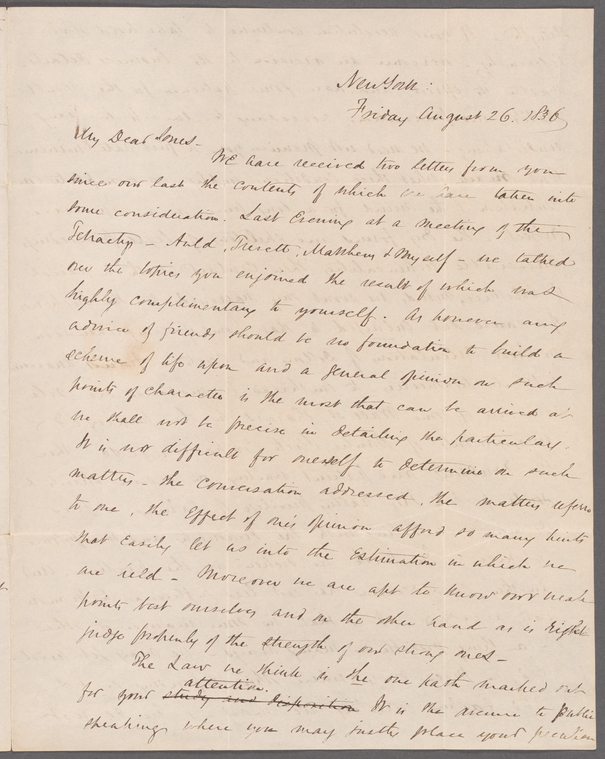 New York:
Friday August 26. 1836
My Dear Jones-
We have received two letters from you
since our last the contents of which we have taken into
some consideration. Last Evening at a meeting of the
Tetractys - Auld, Trescott, Matthews & Myself - we talked
over the topics you enjoined the result of which was
highly complimentary to yourself. As however any
advice of friends should be no foundation to build a
scheme of life upon and a general opinion on such
points of character is the most that can be arrived at
we shall not be precise in detailing the particulars.
It is not difficult for oneself to determine on such
matters - the conversation addressed, the matters referred
to one, the Effect of one's opinion afford so many hints
that Easily let us into the Estimation in which we
are held - Moreover we are apt to know our weak
points best ourselves and on the other hand as is right
judge properly of the strength of our strong ones -
The Law we think is the one path marked out
for your study and disposition attention. It is the avenue to public
speaking where you may justly place your